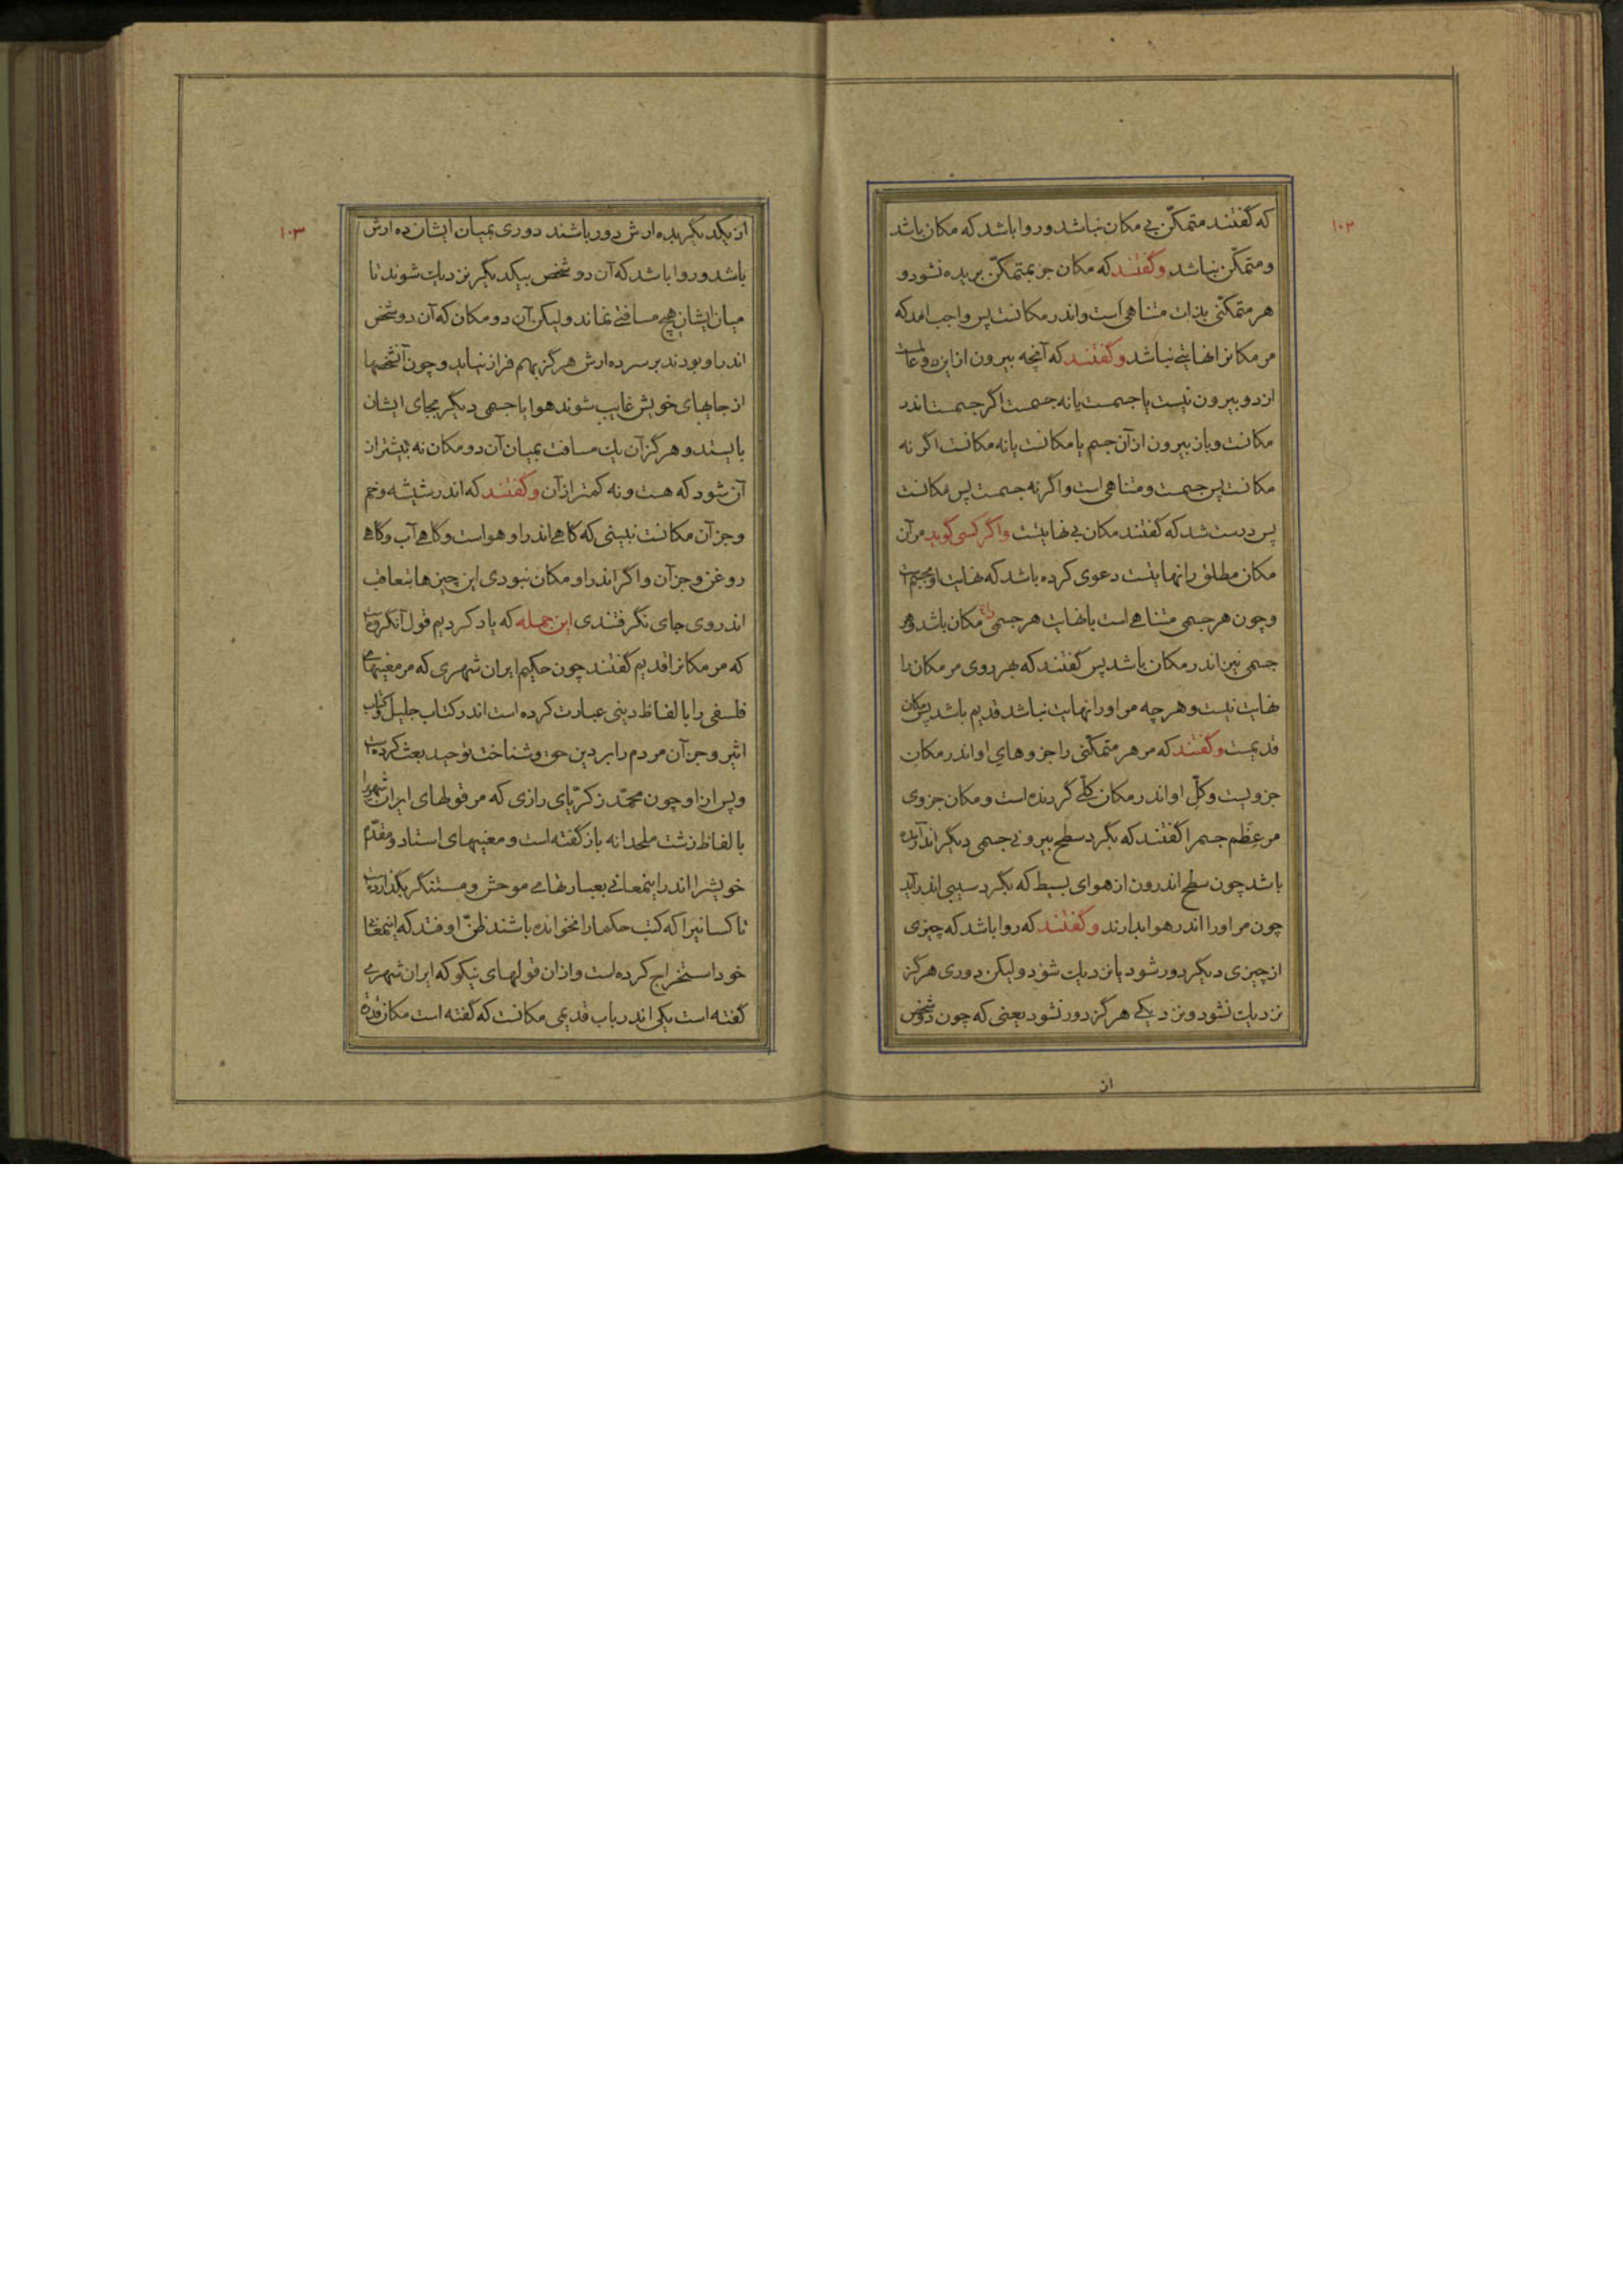 ۱۰۲
که گفتند متمکّن بی مکان نباشد و روا باشد که مکان باشد
و متمکّن نباشد وگفتند که مکان جز بمتمکّن بریده نشود و
هر متمکّنی بذات متناهی است و اندر مکانست پس واجب امد که
مر مکانرا نهایتی نباشد وگفتند که آنچه بیرون ازین دو
از دو بیرون نیست یا جسمست یا نه جسمست اگر جسمست اندر
مکانست و باز بیرون از آن جسم یا مکانست یا نه مکانست اگر نه
مکانست پس جسمست و متناهی است و اگر نه جسمست پس مکانست
پس درست شد که گفتند مکان بی نهایتست واگر کسی گوید مر آن
مکان مطلق را نهایتست دعوی کرده باشد که نهایت او بجسم است
و چون هر جسمی متناهی است یا نهایت هر جسمی را مکان باشد و هر
جسمی نیز اندر مکان باشد پس گفتند که بهر روی مر مکان را
نهایت نیست و هر چه مر او را نهایت نباشد قدیم باشد پس مکان
قدیمست وگفتند که مر هر متمکّنی را جزوهای او اندر مکان
جزویست و کلّ او اندر مکان کلّی گردنده است و مکان جزوی
مر عِظَم جسم را گفتند که بگرد سطح بیرونی جسمی دیگر اندر آمده
باشد چون سطح اندرون از هوای بسیط که بگرد سیبی اندر آید
چون مر او را اندر هوا بدارند وگفتند که روا باشد که چیزی
از چیزی دیگر دور شود یا نزدیک شود ولیکن دوری هرگز
نزدیک نشود و نزدیکی هرگز دور نشود یعنی که چون دو شخص
از
۱۰۳
از یکدیگر بده ارش دور باشند دوری بمیان ایشان ده ارش
باشد و روا باشد که آن دو شخص بیکدیگر نزدیک شوند تا
میان ایشان هیچ مسافتی نماند ولیکن آن دو مکان که آن دو شخص
اندر او بودند بر سر ده ارش هرگز بهم فراز نیاید و چون آنشخصها
از جایهای خویش غایب شوند هوا یا جسمی دیگر بجای ایشان
بایستد و هرگز آن یک مسافت بمیان آن دو مکان نه بیشتر از
آن شود که هست و نه کمتر از آن وگفتند که اندر شیشه و خم
و جز آن مکانست نبینی که گاهی اندر او هواست و گاهی آب و گاهی
روغن و جز آن و اگر اندر او مکان نبودی این چیزها بتعاقب
اندر وی جای نگرفتندی این جمله که یاد کردیم قول آنگروهست
که مر مکانرا قدیم گفتند چون حکیم ایران شهری که مر معنیهای
فلسفی را بالفاظ دینی عبارت کرده است اندر کتاب جلیل و کتاب
اثیر و جز آن مردم را بر دین حق و شناخت توحید بعث کرده است
و پس از او چون محمّد زکریّای رازی که مر قولهای ایران شهری را
بالفاظ زشت ملحدانه باز گفته است و معنیهای استاد و مقدّم
خویشرا اندر اینمعانی بعبارتهای موحش و مستنکر بگذارده است
تا کسانیرا که کتب حکما را نخوانده باشند ظنّ اوفتد که اینمعانی
خود استخراج کرده است و از ان قولهای نیکو که ایران شهری
گفته است یکی اندر باب قدیمی مکانست که گفته است مکان قدرة